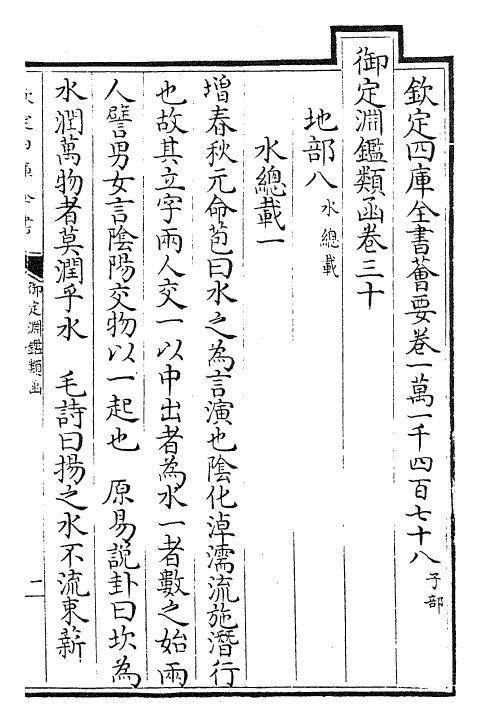 欽定四庫全書薈要卷一萬一千四百七十八 子部
御定淵鑑類函卷三十
地部八 水總載
水總載一
增春秋元命苞曰水之為言演也陰化淖濡流施潛行
也故其立字兩人交一以中出者為水一者數之始兩
人譬男女言陰陽交物以一起也 原易說卦曰坎為
水潤萬物者莫潤乎水 毛詩曰揚之水不流束薪
欽定四庫全書
御定淵鑑類函
二